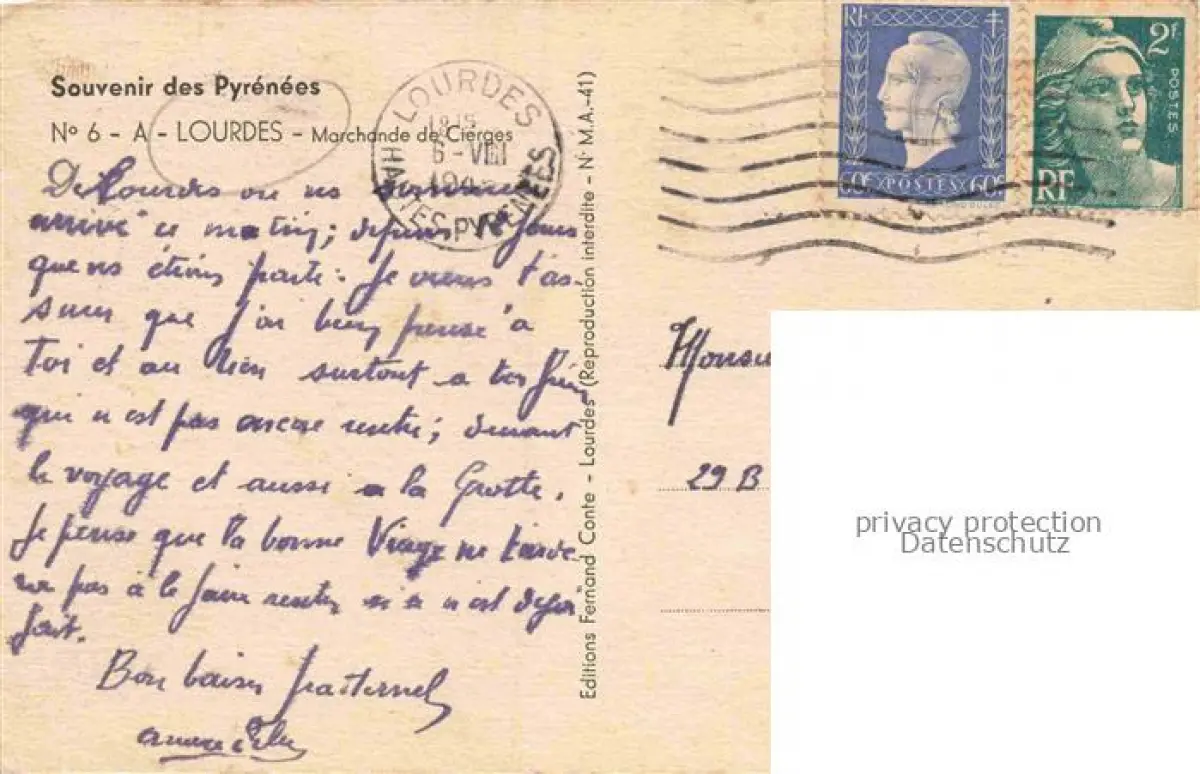 Souvenir des Pyrénées
Nº 6 - A - LOURDES - Marchande de Cierges
De Lourdes ou ns sommes
arrivé ce matin; depuis jours
que ns étions parti. Je viens t'as-
surer que j'ai bien pensé à
Toi et au tien surtout a ton
qui n est pas encore rentré; durant
le voyage et aussi a la Grotte.
Je pense que la bonne Vierge ne tarde
ra pas à le faire rentrer si ce n est deja
fait.
Bon baiser fraternel
Editions Fernand Conte - Lourdes (Reproduction interdite - Nº M.A.-41)
LOURDES
1815
6 - VIII
HAUTES PYRENEES
RF
60F POSTES 60F
2F
POSTES
RF
29 B
privacy protection
Datenschutz